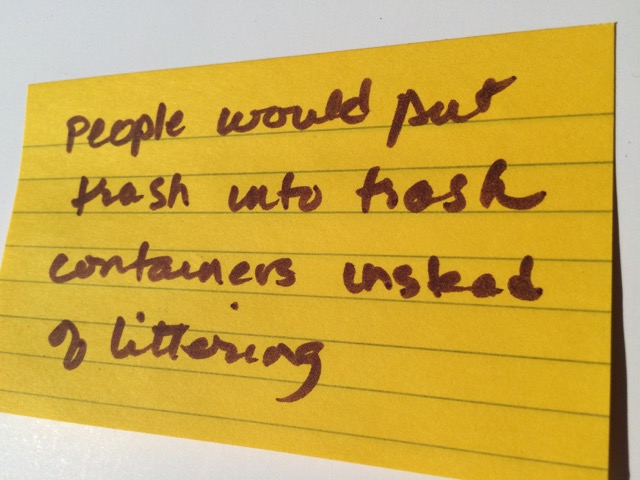 People would put
trash into trash
containers instead
of littering